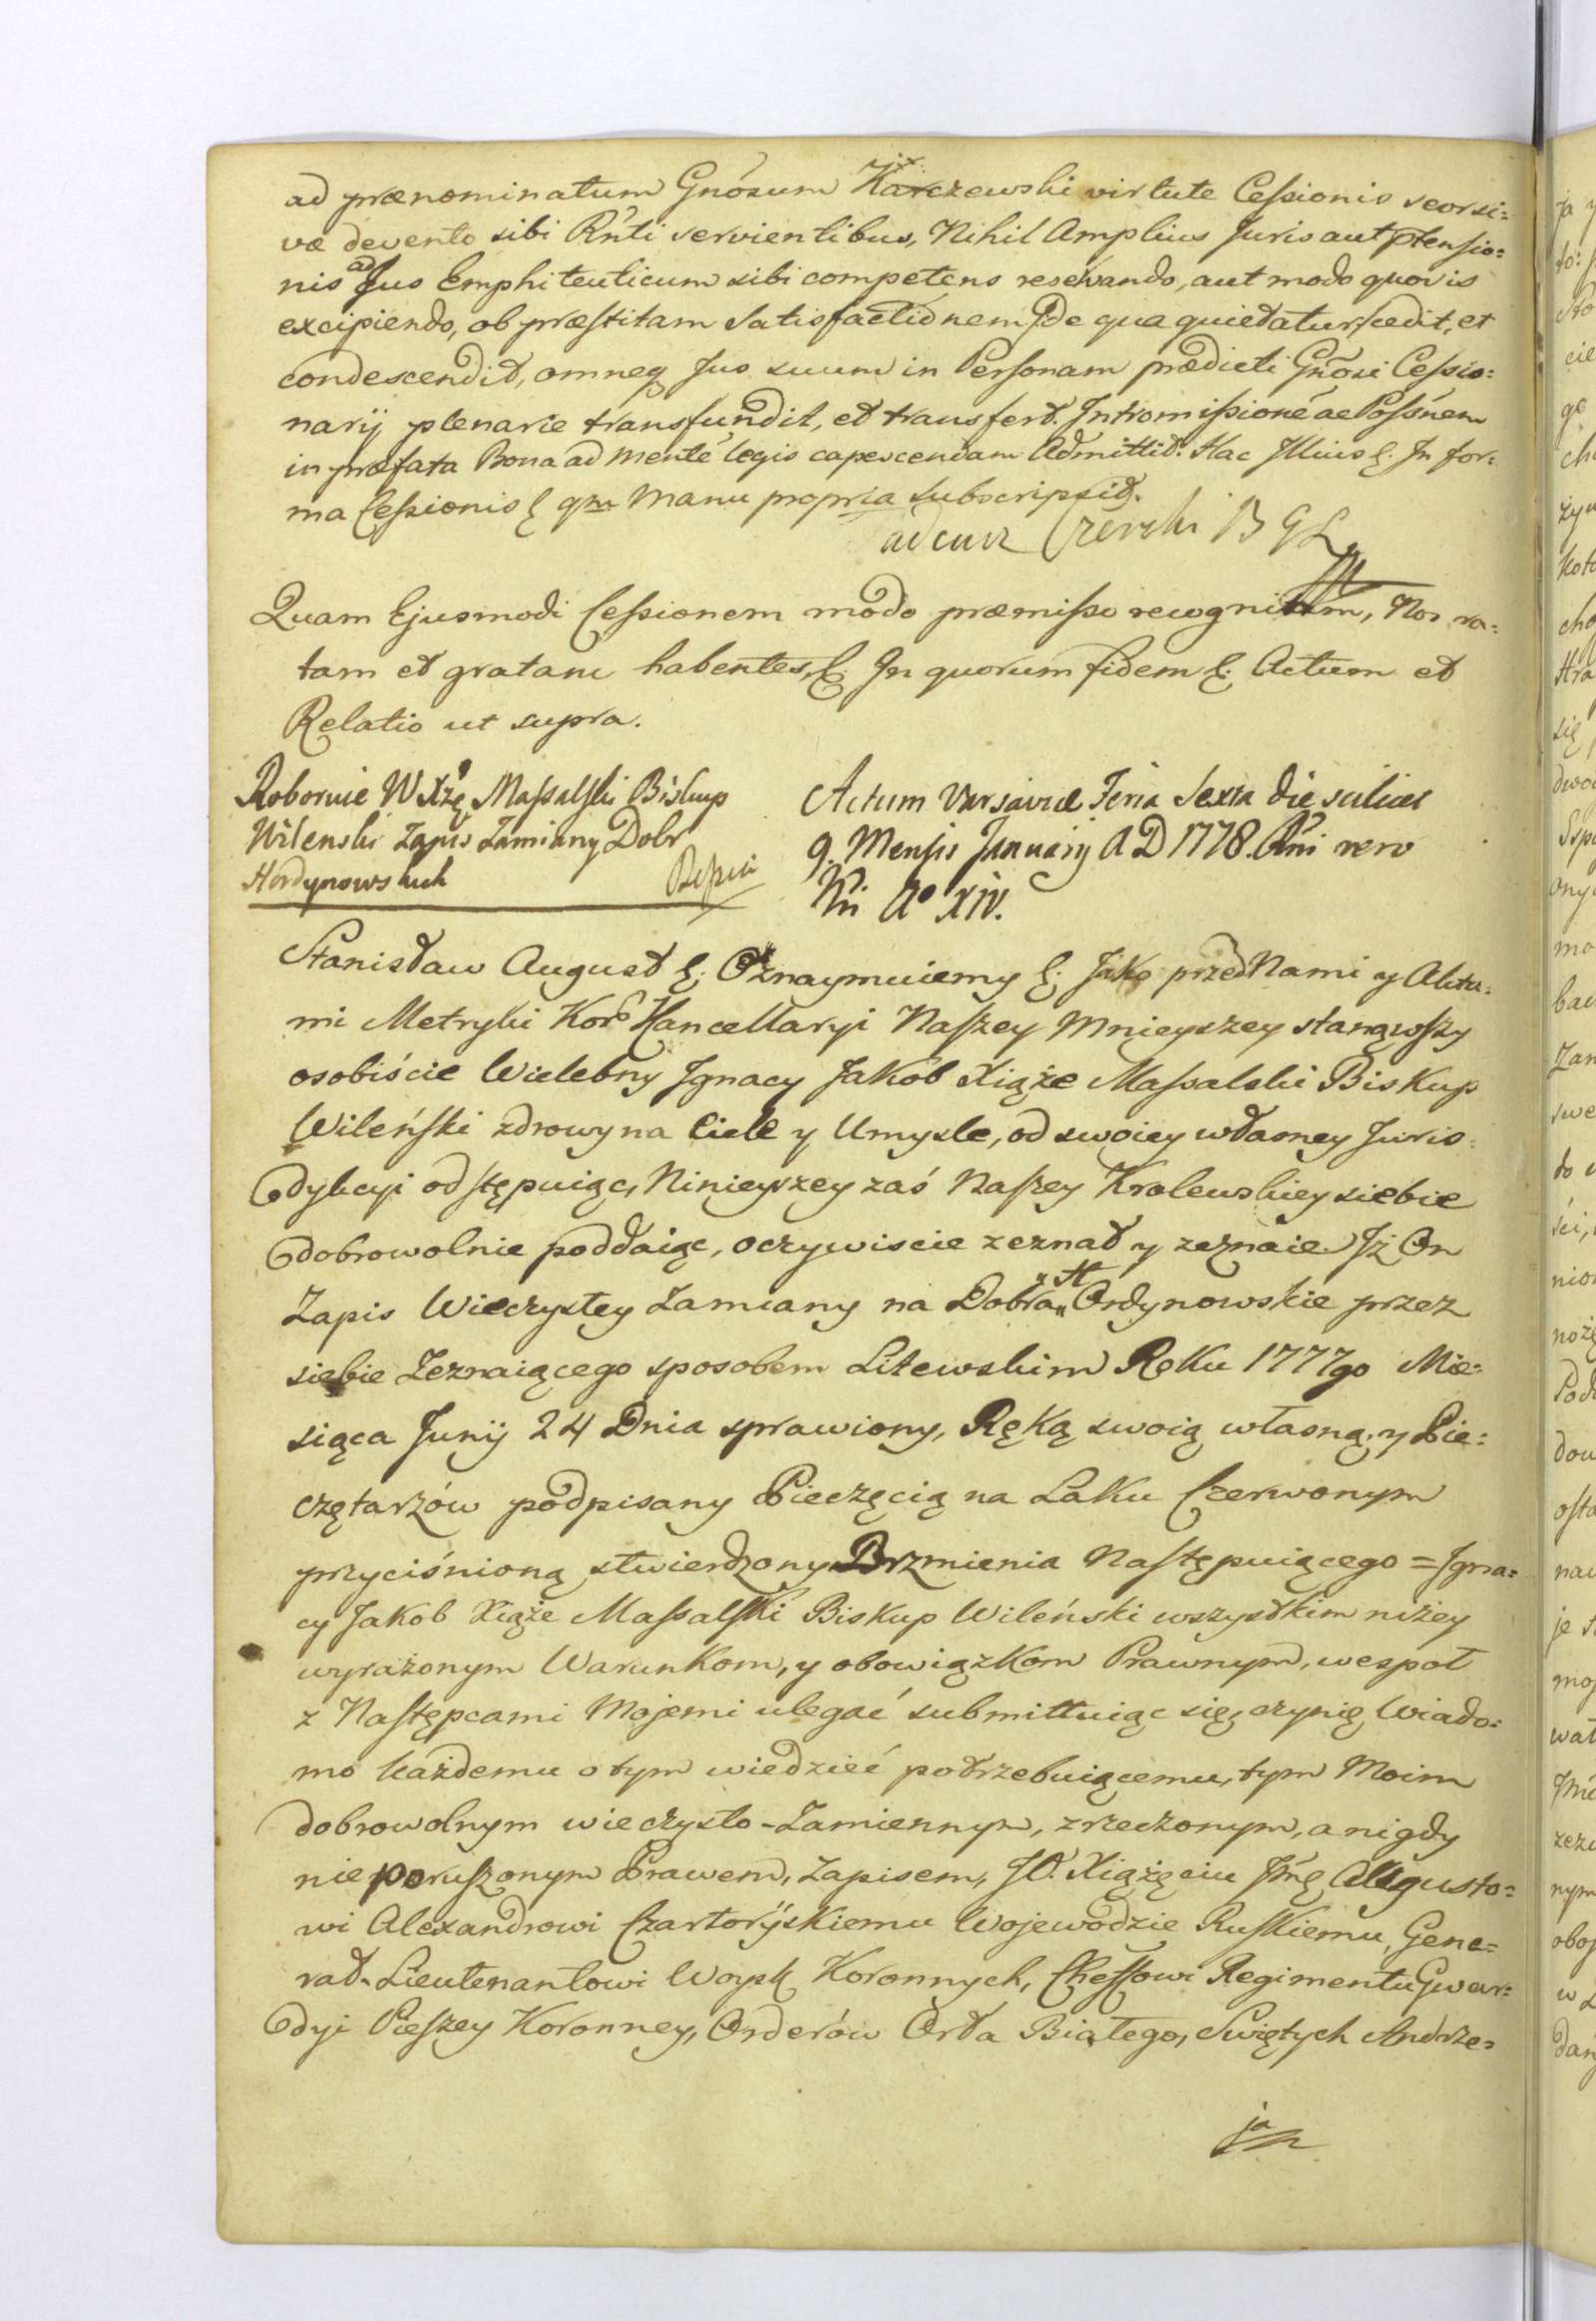 ad prænominatum Gnósum Karczewski virtute Cessionis seorsi=
væ devento sibi Rńti servientibus, Nihil Amplius Juris aut ptensio=
nis ad Jus Emphiteuticum sibi competens reservando, aut modo quovis
excipiendo, ob præstitam Satisfactionem de qua quietatur, cedit, et
condescendit, omneq Jus suum in Personam prædicti Gñosi Cessio=
narij plenarie transfundit, et transfert. Intromissioné ac Possńem
in præfata Bona ad menté legis capescendam Admittit. Hac Illius &. In for=
ma Cessionis & qm Manu propria subscripsit.
Czerski B G L
Quam Ejusmodi Cessionem modo præmisso recognitam, Nos ra=
tam et gratam habentes, &. In quorum fidem &. Actum et
Relatio ut supra.
Roboruie W Xżę Massalski Biskup
Wilenski Zapis Zamiany Dobr
Hordynowskich
Actum Varsaviæ Feria Sexta die scilicet
9. Mensis Januarij A D 1778. Rńi vero
Ñri Aº XIV.
Stanisław August &. Oznaymuiemy &. Jako przed Nami y Aktu=
mi Metryki Kor Kancellaryi Naszey Mnieyszey stanąwszy
osobiście Wielebny Ignacy Jakób Xiąże Massalski Biskup
Wileński zdrowy na Ciele y Umysle, od swoiey własney Juris=
dykcyi odstępuiąc, Ninieyszey zaś Naszey Krolewskiey siebie
dobrowolnie poddaiąc, oczywiscie zeznał y zeznaie. Iż On
Zapis Wieczystey Zamiany na Dobra H Ordynowskie przez
siebie Zeznaiącego sposobem Litewskim Roku 1777go Mie=
siąca Junij 24 Dnia sprawiony, Ręką swoią własną, y Pie=
czętarzów podpisany Pieczęcią na Laku Czerwonym
przyciśnioną stwierdzony Brzmienia Następuiącego = Igna=
cy Jakob Xiąże Massalski Biskup Wileński wszystkim niżey
wyrażonym Warunkom, y obowiązkom Prawnym, wespoł
z Następcami Mojemi ulegać submittuiąc się, czynię Wiado=
mo każdemu o tym wiedzieć potrzebuiącemu, tym Moim
dobrowolnym wieczysto-Zamiennym, zrzeczonym, a nigdy
nieporuszonym Prawem, Zapisem, JO. Xiążęciu Jmć Augusto=
wi Alexandrowi Czartoryskiemu Wojewodzie Ruskiemu, Gene=
rał-Lieutenantowi Woysk Koronnych, Cheffowi Regimentu Gwar=
dyi Pieszey Koronney, Orderów Orła Białego, Swiętych Andrze=
ja